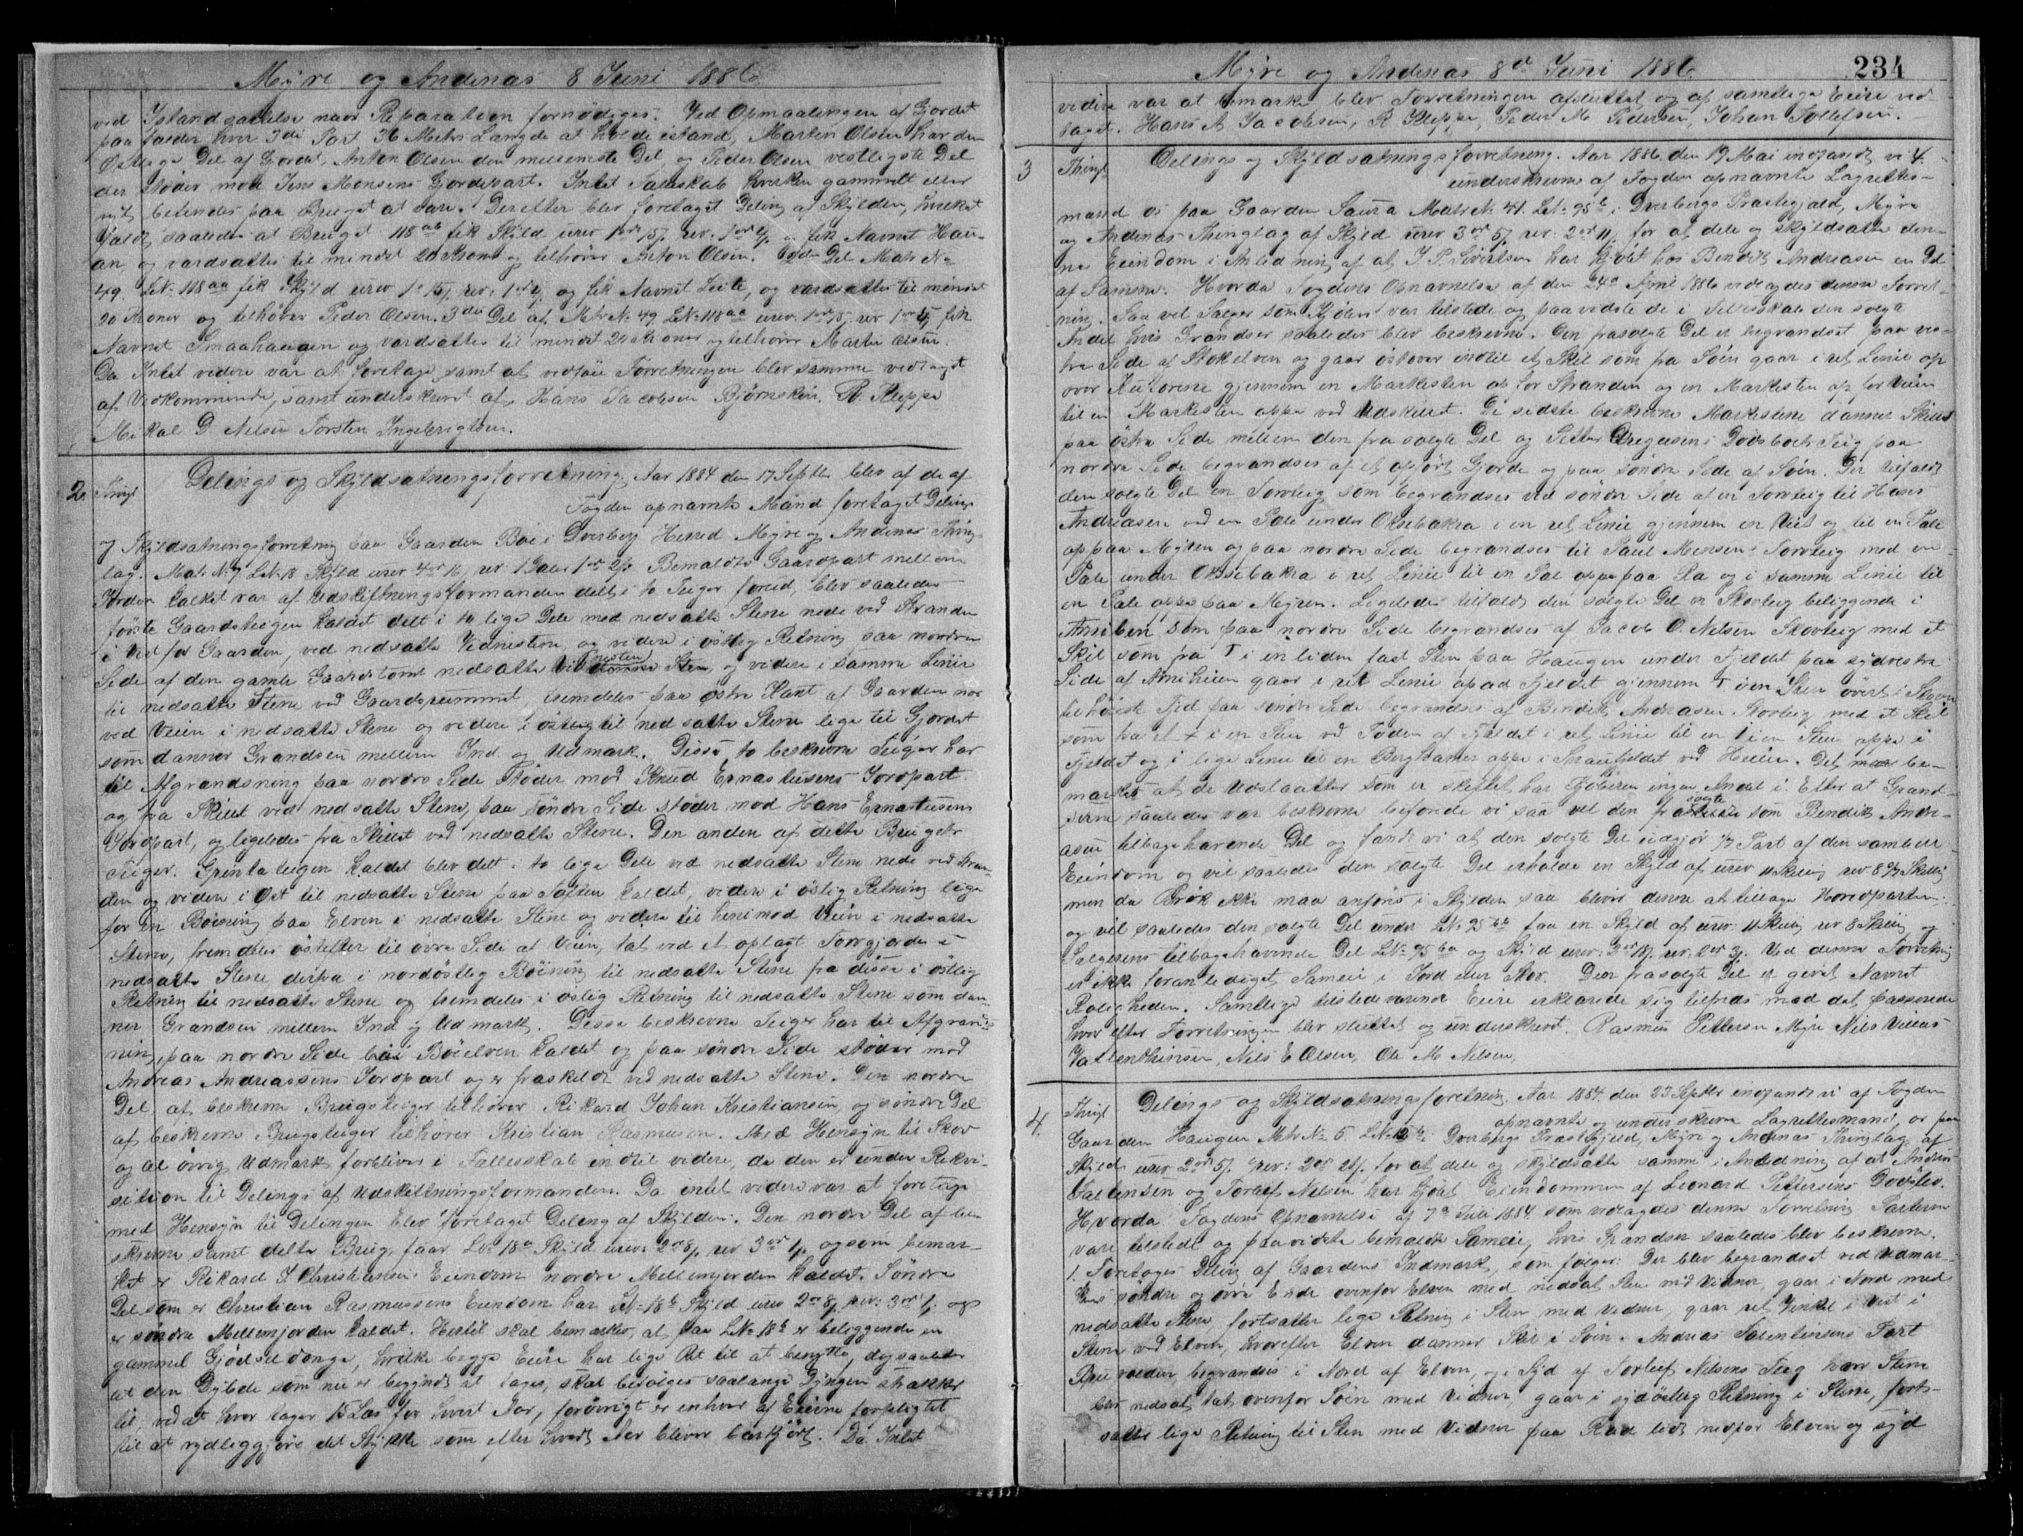 Myre og Andenæs 8 Juni 1886
ved Istandsættelse naar Reparation fornødiges. Ved Opmaalingen af Gjordet
paa falder hver 3die Part 76 Meters Længde at holde istand, Martin Olsen har den
Østlige Del af Gordet, Anton Olsen den mellemste Del, og Peder Olsen vestligste Del
der støder mod Jens Monsens Gjordepart. Intet Fælleskab hverken gammelt eller
nyt befandtes paa Bruget at være. Derefter blev foretaget Deling af Skylden, hvilket
faldt saaledes at Bruget 118 ab fik Skyld urev 1 ort 15/ rev. 1 ort 4/ og fik Navnet Hau-
an og værdsattes til mindst 20 Kroner og tilhører Anton Olsen. 2den Del Matr No
49 LNo 118 aa fik Skyld urev 1 o 15/, rev: 1 ort 4/ og fik Navnet Leite, og værdsattes til mindst
20 Kroner og tilhører Peder Olsen. 3die Del af Mtr No. 49 LNo 118 urev. 1 ort 15/ rev 1 ort 4/ fik
Navnet Smaahaugen og værdsattes til mindst 20 Kroner og tilhører Martin Olsen.
Da Intet videre var at foretage samt at vedføie Forretningen blev samme vedtaget
af Vedkommende, samt underskrevet af Hans Jacobsen Bjørnskin. R. Kleppe
Mikal D. Nilsen Torsten Ingebrigtsen.
2 Thingl Delings og Skyldsætningsforretning, Aar 1884 den 17 Septbr blev af de af
Fogden opnævnte Mænd foretaget Delings
og Skyldsætningsforretning paa Gaarden Bø i Dverberg Herred Myre og Andenæs Thing-
lag. Matr No 9 LNo 18 Skyld urev 4 ort 16/, rev 1 Daler 1 ort 2/. Bemældte Gaardpart mellem
Jorden kaldet var af Udskiftningsformanden delt i to Teiger forud, blev saaledes
første Gaardsteigen kaldet delt i to lige Dele med nedsatte Stene nede ved Stranden
i Ved for Gaarden, ved nedsatte Vidnesten og videre i østlig Retning paa nordre
Side af den gamle Gaardstomt nedsatte Vidnesten Sten, og videre i samme Linie
til nedsatte Stene ved Gaardsrummet fremdeles paa østre Kant af Gaarden nær
ved Veien i nedsatte Stene og videre i østlig til nedsatte Stene lige til Gjordet
som danner Grændsen mellem Ind og Udmark. Disse to beskrevne Teiger har
til Afgrændsning paa nordre Side støder mod Knud Ernastusens Jordpart
og fra Skillet ved nedsatte Stene, paa søndre Side støder mod Hans Ernastusens
Jordpart, og ligeledes fra Skillet ved nedsatte Stene. Den anden af dette Brugets
Teiger. Grenta teigen kaldet blev delt i to lige Dele ved nedsatte Stene nede ved Stran-
den og videre i Øst til nedsatte Stene paa kaldet, videre i østlig Retning lige
for en Bøining paa Elven i nedsatte Stene og videre til henimod Veien i nedsatte
Stene, fremdeles østefter til øvre Side at Veien, tæt ved et oplagt Torvgjorde i
nedsatte Stene derfra i nordøstlig Bøining til nedsatte Stene fra disse i østlig
Retning til nedsatte Stene og fremdeles i østlig Retning til nedsatte Stene som dan-
ner Grændsen mellem Ind og Udmark. Disse beskrevne Teiger har til Afgrænds-
ning, paa nordre Side Bøielven kaldet og paa søndre Side støder mod
Andreas Andreassens Jordpart og er fraskildt ved nedsatte Stene. Den nordre
Del af beskrevne Brugsteiger tilhører Rikard Johan Kristiansen, og søndre Del
af beskrevne Brugsteiger tilhører Kristian Rasmusen. Med Hensyn til Skov
og al øvrig Udmark forbliver i Fælleskab indtil videre, da den er under Rekvi-
sition til Delings af Udskiftningsformanden. Da intet videre var at foretage
med Hensyn til Delingen blev foretaget Deling af Skylden. Den nordre Del af be-
skrevne samt delte Brug, faar LNo 18 a Skyld urev 2 ort 8/, rev 3 ort 1/, og som bemær-
ket er Rikard J. Christiansens Eiendom nordre Mellemjorden kaldet. Søndre
Del som er Christian Rasmussens Eiendom har LNo 18 b Skyld urev 2 ort 8/ rev: 3 ort 1/ og
er søndre Mellemjorden kaldet. Hertil skal bemærkes, at paa LNo 18 b er beliggende en
gammel Gjødseldynge, hvilke begge Eiere har lige Ret til at benytte, dog saaledes
at den Dybde som nu er begyndt at tages, skal befølges saalænge Dyngen strækker
til, ved at hver tager 15 Læs for hvert Aar, forøvrigt er enhver af Eierne forpligtet
til at rydliggjøre det Stykke som efter hvert Aar bliver bortkjørt. Da Intet
Myre og Andenæs 8de Juni 1886
234
videre var at bemærke, blev Forretningen afsluttet og af samtlige Eiere ved-
taget. Hans A Jacobsen, R Kleppe, Peder M Pedersen, Johan Tollefsen.
3 Thingl Delings og Skyldsætningsforretning. Aar 1886 den 19 Mai indfandt vi 4
underskrevne af Fogden opnævnte Lagrettes-
mænd os paa Gaarden Saura Matr No 41. LNo 95 b i Dverbergs Præstegjæld, Myre
og Andenæs Thinglag af Skyld urev 3 ort 5/ rev. 2 ort 11/ for at dele og skyldsætte den-
ne Eiendom i Anledning af at J. P. Sivertsen har kjøbt hos Bendik Andreasen en Del
af Samme. Hvorda Fogdens Opnævnelse af den 24de April 1886 vedlagdes denne Forret-
ning. Saa vel Sælger som Kjøber var tilstede og paaviste de i Fælleskab den solgte
Andel hvis Grændser saaledes blev beskrevne. Den frasolgte Del er begrændset paa ves-
tre Side af Stokelven og gaar østover indtil et Skil som fra Søen gaar i ret Linie op
over gjennem en Markesten op for Stranden og en Markesten op for Veien
til en Markesten oppe ved Udskillet. De sidste beskrevne Markestene danner Skillet
paa østre Side mellem den fra solgte Del og Petter Dregesens Dødsboets Teig paa
nordre Side begrændses af et opført Gjerde og paa søndre Side af Søen. Der tilfaldt
den solgte Del en Torvteig som begrændses ved søndre Side af en Torvteig til Hans
Andreasen ved en Pæle under Oksebakka i en ret Linie gjennem en Veit og til en Pæle
op paa Myren og paa nordre Side begrændses til Paul Monsens Torvteig med en
Pæle under Oksebakka i ret Linie til en Pæl oppe paa Ra og i samme Linie til
en Pæle oppe paa Myren. Ligeledes tilfaldt den solgte Del en Skovteig beliggende i
som paa nordre Side begrændses af Jacob O. Nilsen Skovteig med et
Skil som fra T i en liden fast Sten paa Haugen under Fjeldet paa sydvestre
Side af gaar i ret Linie opad Fjeldet gjennem T i en Sten øverst i Skoven
til høiste Fjeld paa søndre Side begrændses af Bendik Andreasen Skovteig med et Skil
som fra et + i en Sten ved Foden af Fjeldet i ret Linie til en i en Sten oppe i
Fjeldet og i lige Linie til en Berghamer oppe i Smaafjeldet ved Heien. Det maa be-
mærkes at de Udslaatter som er skiftet har Kjøberen ingen Andel i. Efter at Grænd-
serne saaledes var beskrevne befarede vi saa vel den fra solgte som Bendik Andre-
asen tilbagehavende Del og fandt vi at den solgte Del udgjør 1/7 Part af den samlede
Eiendom og vil saaledes den solgte Del erholde en Skyld af urev 11 Skilling rev 8 Skilling
men da Brøk ikke maa anføres i Skylden saa bliver denne at tillægge Hovedparten
og vil saaledes den solgte Del under LNo 95 bb faa en Skyld af urev. 11 Skilling rev 8 Skilling og
Sælgerens tilbagehavende Del LNo 95 ba og Skyld urev: 2 ort 18/, rev. 2 ort 3/. Ved denne Forretning
er ikke foranlediget Sameie i Jord eller Skov. Den frasolgte Del er givet Navnet
Roligheden. Samtlige tilstedeværende Eiere erklærede sig tilfreds med det passerede
hvor efter Forretningen blev sluttet og underskrevet. Rasmus Pettersen Myre Nils Villas
Vallenthinsen, Nils E Olsen, Ole M Nilsen.
4. Thingl Delings og Skyldsætningsforretning. Aar 1884 den 23 Septbr indfandt vi af Fogden
opnævnte og underskrevne Lagrettesmænd, os paa
Gaarden Haugen Mtr No 5. LNo 12 b Dverbergs Præstegjæld, Myre og Andenæs Thinglag af
Skyld urev 2 ort 5/ rev: 2 ort 21/, for at dele og skyldsætte samme i Anledning af at Andreas
Falentsen og Torlef Nilsen har kjøbt Eiendommen af Leonard Pettersens Dødsbo.
Hvorda Fogdens Opnævnelse af 7de Juli 1884 som vedlagdes denne Forretning Parterne
vare tilstede og paaviste bemældte Sameie, hvis Grændser saaledes blev beskrevne.
1. Foretages Deling af Gaardens Indmark, som følger: Der blev begrændset ved Udmar-
kens søndre og øvre Ende ovenfor Elven med nedsat Sten med Vidner, gaar i Nord med
nedsatte Stene, fortsætter lige Retning i Sten med Vidner, gaar ret Vinkel i Vest i
Stene ved Elven, hvorefter Elven danner Skil i Søen. Andreas Falentinsens Part
begrændses i Nord af Elven, og i Syd af Torleif Nilsens Teig hvor Stene
blev nedsat tæt ovenfor Søen med Vidner gaar i sydøstlig Retning i Stene, fort-
sætte lige Retning til Sten med Vidner paa Rad lidt nedfor Elven og syd